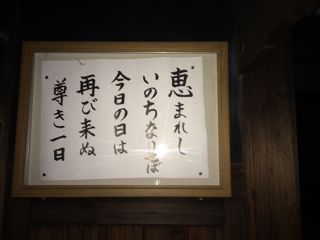 恵まれし
いのちなりせば
今日の日は
再び来ぬ
尊き一日